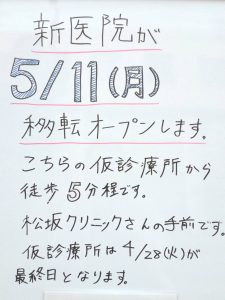 新医院が
5/11(月)
移転オープンします。
こちらの仮診療所から
徒歩5分程です。
松坂クリニックさんの手前です。
仮診療所は4/28(火)が
最終日となります。